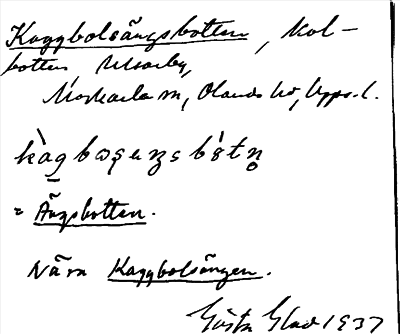 Kaggbolsängsbotten, kol-
botten Ulvarby,
Morkarla sn, Olands hd, Upps. l.
kàgbωsεŋsbótn̥
= Ängsbotten.
Nära Kaggbolsängen.
Gösta Glad 1937